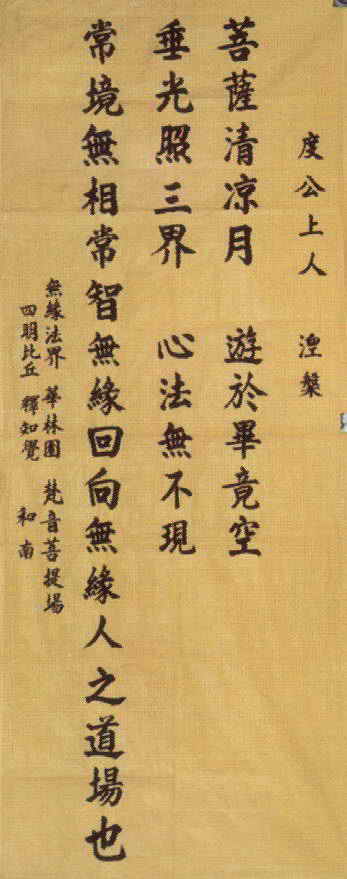 度公上人 涅槃
菩薩清凉月 遊於畢竟空
垂光照三界 心法無不現
常境無相常智無緣回向無緣人之道場也
無緣法界 華林園 梵音菩提場
四明比丘 釋知覺 和南